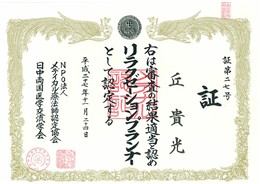 証第二七号
証
丘貴光
右は審査の結果適当と認め
リラクゼーションプランナー
として認定する
平成二十七年十一月二十四日
NPO法人
メディカル療法師認定協会
日中両国医学交流学会